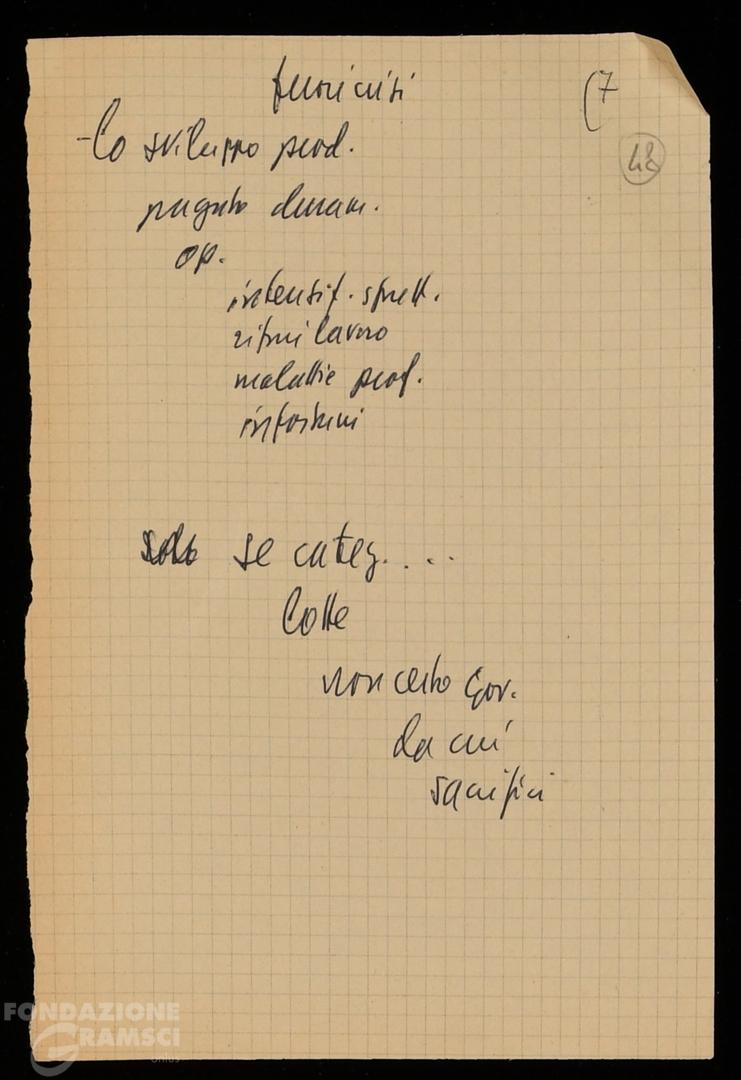 fuori crisi
(7
48
- Lo sviluppo prod.
pagato duram.
op.
intensif. sfrutt.
ritmi lavoro
malattie prof.
infortuni
se categ....
Lotte
non certo Gov.
da cui
sacrifici
FONDAZIONE
GRAMSCI
onlus